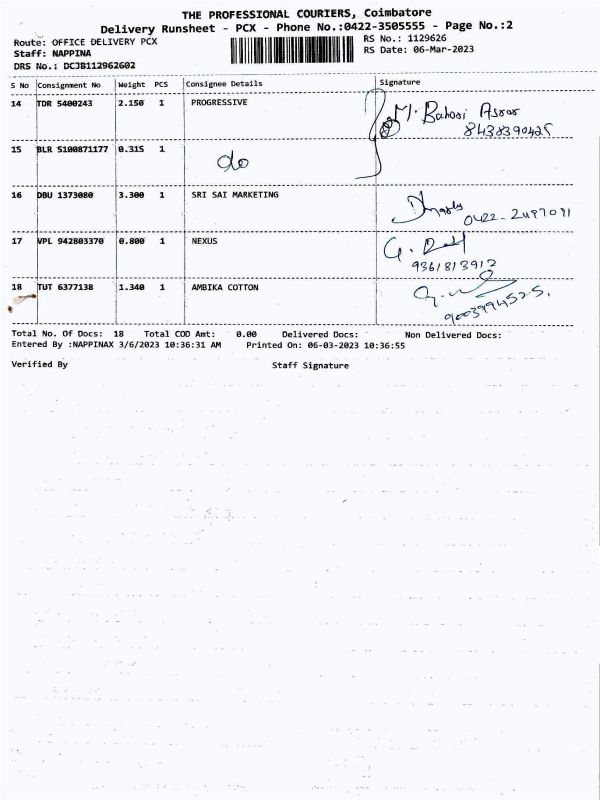 THE PROFESSIONAL COURIERS, Coimbatore
Delivery Runsheet - PCX - Phone No.:0422-3505555 - Page No.:2
Route: OFFICE DELIVERY PCX
RS No.: 1129626
Staff: NAPPINA
RS Date: 06-Mar-2023
DRS No.: DCJB112962602
S No Consignment No Weight PCS Consignee Details Signature
14 TDR 5400243 2.150 1 PROGRESSIVE M. Bahari
8438390425
15 BLR 5100871177 0.315 1 do
16 DBU 1373080 3.300 1 SRI SAI MARKETING
0422-2497091
17 VPL 942803370 0.800 1 NEXUS G.
9361813912
18 TUT 6377138 1.340 1 AMBIKA COTTON
9003994525.
Total No. Of Docs: 18 Total COD Amt: 0.00 Delivered Docs: Non Delivered Docs:
Entered By :NAPPINAX 3/6/2023 10:36:31 AM Printed On: 06-03-2023 10:36:55
Verified By Staff Signature